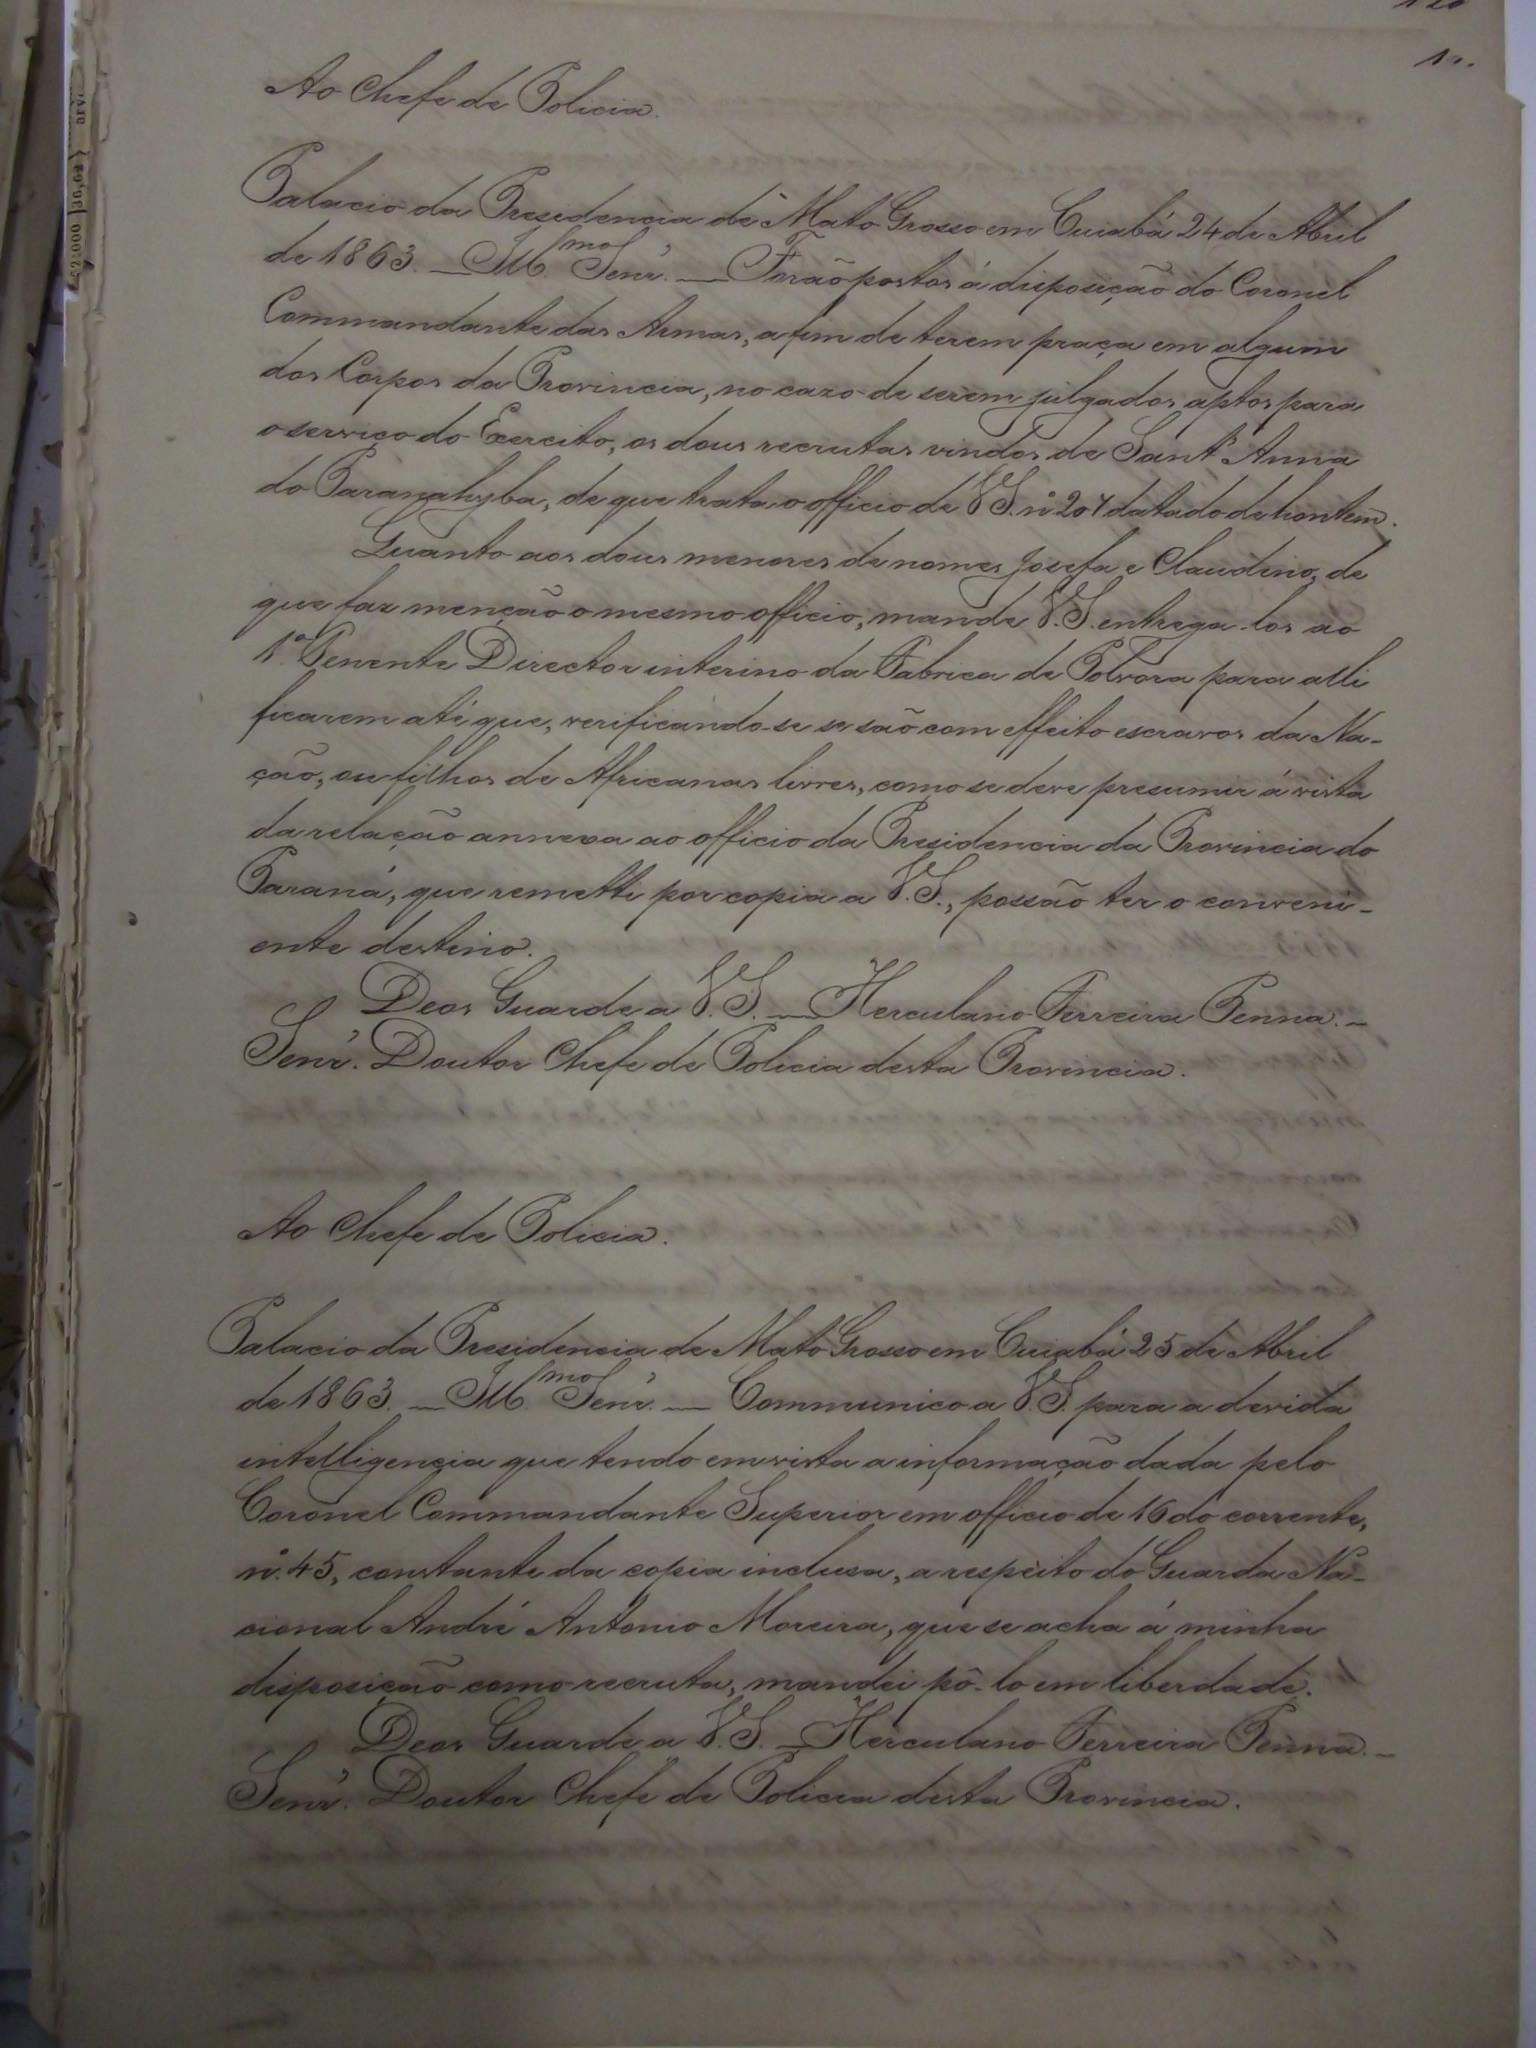 Ao Chefe de Policia.
Palacio da Presidencia de Mato Grosso em Cuiabá 24 de Abril
de 1863. — Ill.mo Senr. — Forão postos á disposição do Coronel
Commandante das Armas, a fim de terem praça em algum
dos Corpos da Provincia, no cazo de serem julgados aptos para
o serviço do Exercito, os dous recrutas vindos de Sant'Anna
do Paranahyba, de que trata o officio de V.S. nº 207 datado de hontem.
Quanto aos dous menores de nomes Josefa e Claudino, de
que faz menção o mesmo officio, mande V.S. entrega-los ao
1º Tenente Director interino da Fabrica de Polvora para alli
ficarem até que, verificando-se se são com effeito escravos da Na-
ção, ou filhos de Africanas livres, como se deve presumir á vista
da relação annexa ao officio da Presidencia da Provincia do
Paraná, que remetti por copia a V.S., possão ter o conveni-
ente destino.
Deos Guarde a V.S. — Herculano Ferreira Penna. —
Senr. Doutor Chefe de Policia desta Provincia.
Ao Chefe de Policia.
Palacio da Presidencia de Mato Grosso em Cuiabá 25 de Abril
de 1863. — Ill.mo Senr. — Communico a V.S. para a devida
intelligencia que tendo em vista a informação dada pelo
Coronel Commandante Superior em officio de 16 do corrente,
nº 45, constante da copia inclusa, a respeito do Guarda Na-
cional André Antonio Moreira, que se acha á minha
disposição como recruta, mandei pô-lo em liberdade.
Deos Guarde a V.S. — Herculano Ferreira Penna. —
Senr. Doutor Chefe de Policia desta Provincia.